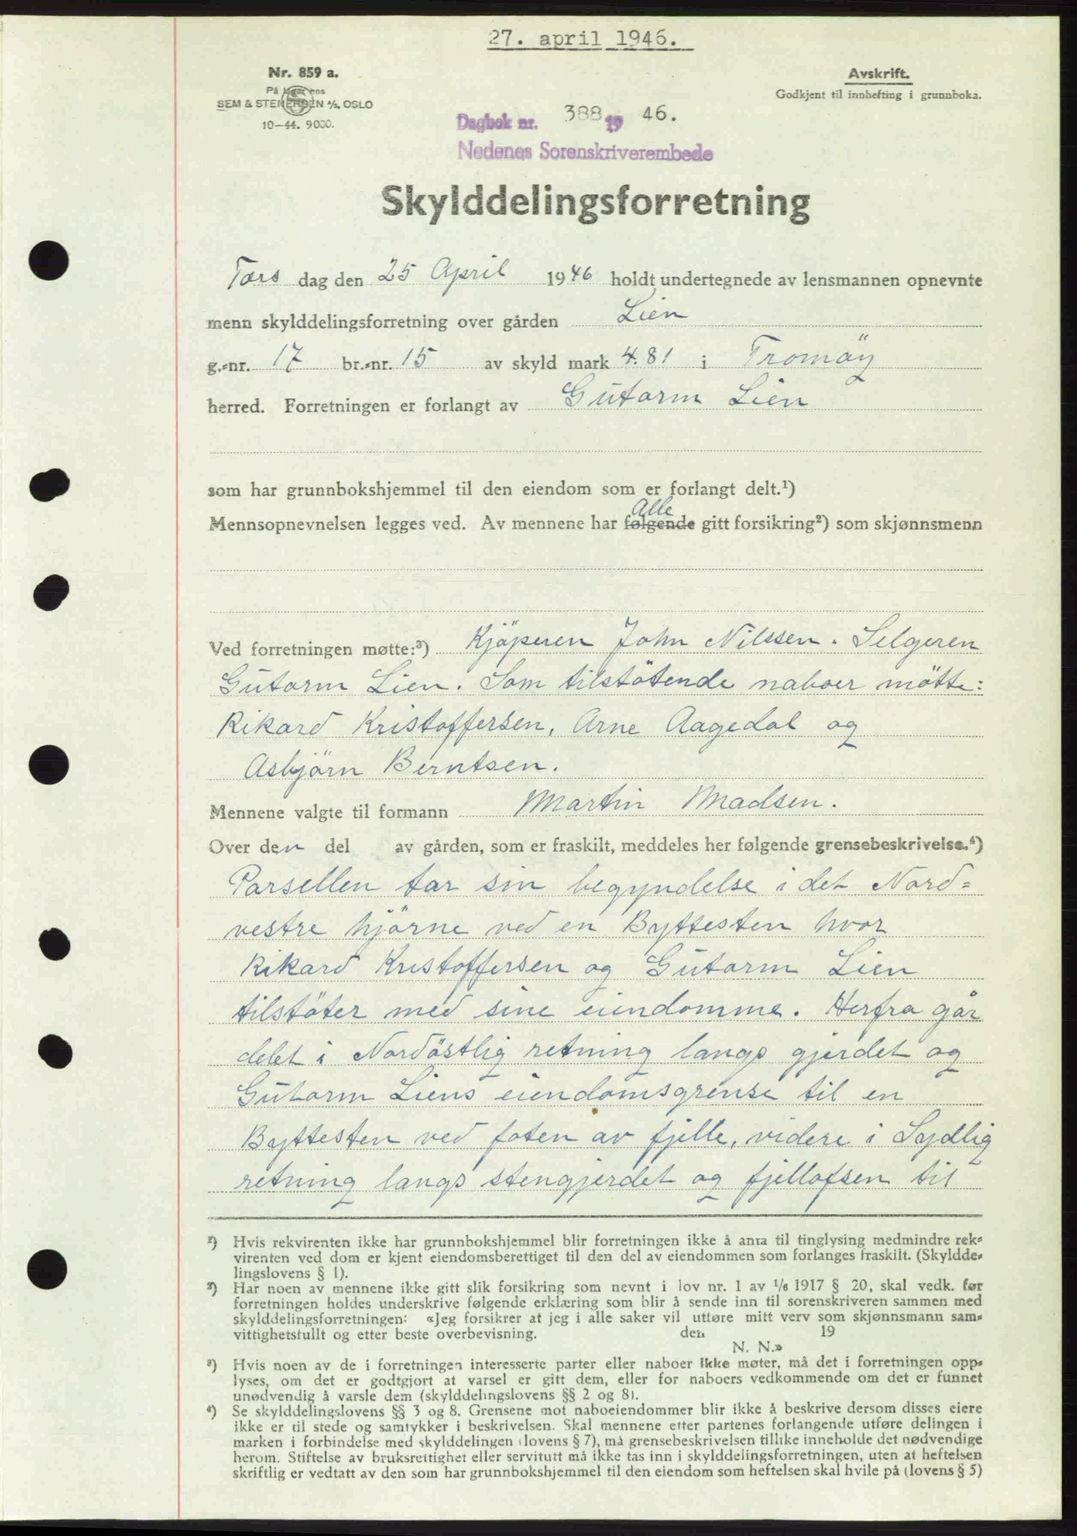 27. april 1946.
Nr. 859 a.
På hos
SEM & STENERSEN A/S, OSLO
10-44. 9000.
Avskrift.
Godkjent til innhefting i grunnboka.
Dagbok nr. 388 19 46.
Nedenes Sorenskriverembede
Skylddelingsforretning
Tors dag den 25 April 1946 holdt undertegnede av lensmannen opnevnte
menn skylddelingsforretning over gården Lien
g.-nr. 17 br.-nr. 15 av skyld mark 4.81 i Tromöy
herred. Forretningen er forlangt av Gutorm Lien
som har grunnbokshjemmel til den eiendom som er forlangt delt.¹)
Alle
Mennsopnevnelsen legges ved. Av mennene har følgende gitt forsikring²) som skjønnsmenn
Ved forretningen møtte:³) Kjöperen John Nilssen. Selgeren
Gutorm Lien. Som tilstötende naboer mötte:
Rikard Kristoffersen, Arne Aagedal og
Asbjörn Berntsen.
Mennene valgte til formann Martin Madsen.
Over den del av gården, som er fraskilt, meddeles her følgende grensebeskrivelse.⁴)
Parsellen tar sin begyndelse i det Nord=
vestre hjörne ved en Byttesten hvor
Rikard Kristoffersen og Gutorm Lien
tilstöter med sine eiendomme. Herfra går
delet i Nordöstlig retning langs gjerdet og
Gutorm Liens eiendomsgrense til en
Byttesten ved foten av fjelle, videre i Sydlig
retning langs stengjerdet og fjellofsen til
¹) Hvis rekvirenten ikke har grunnbokshjemmel blir forretningen ikke å anta til tinglysing medmindre rek-
virenten ved dom er kjent eiendomsberettiget til den del av eiendommen som forlanges fraskilt. (Skyldde-
lingslovens § 1).
²) Har noen av mennene ikke gitt slik forsikring som nevnt i lov nr. 1 av 1/6 1917 § 20, skal vedk. før
forretningen holdes underskrive følgende erklæring som blir å sende inn til sorenskriveren sammen med
skylddelingsforretningen: «Jeg forsikrer at jeg i alle saker vil utføre mitt verv som skjønnsmann sam-
vittighetsfullt og etter beste overbevisning. den 19
N. N.»
³) Hvis noen av de i forretningen interesserte parter eller naboer ikke møter, må det i forretningen opp-
lyses, om det er godtgjort at varsel er gitt dem, eller for naboers vedkommende om det er funnet
unødvendig å varsle dem (skylddelingslovens §§ 2 og 8).
⁴) Se skylddelingslovens §§ 3 og 8. Grensene mot naboeiendommer blir ikke å beskrive dersom disses eiere
ikke er til stede og samtykker i beskrivelsen. Skal mennene etter partenes forlangende utføre delingen i
marken i forbindelse med skylddelingen (lovens § 7), må grensebeskrivelsen tillike inneholde det nødvendige
herom. Stiftelse av bruksrettighet eller servitutt må ikke tas inn i skylddelingsforretningen, uten at heftelsen
skriftlig er vedtatt av den som har grunnbokshjemmel til den eiendom som heftelsen skal hvile på (lovens § 5)